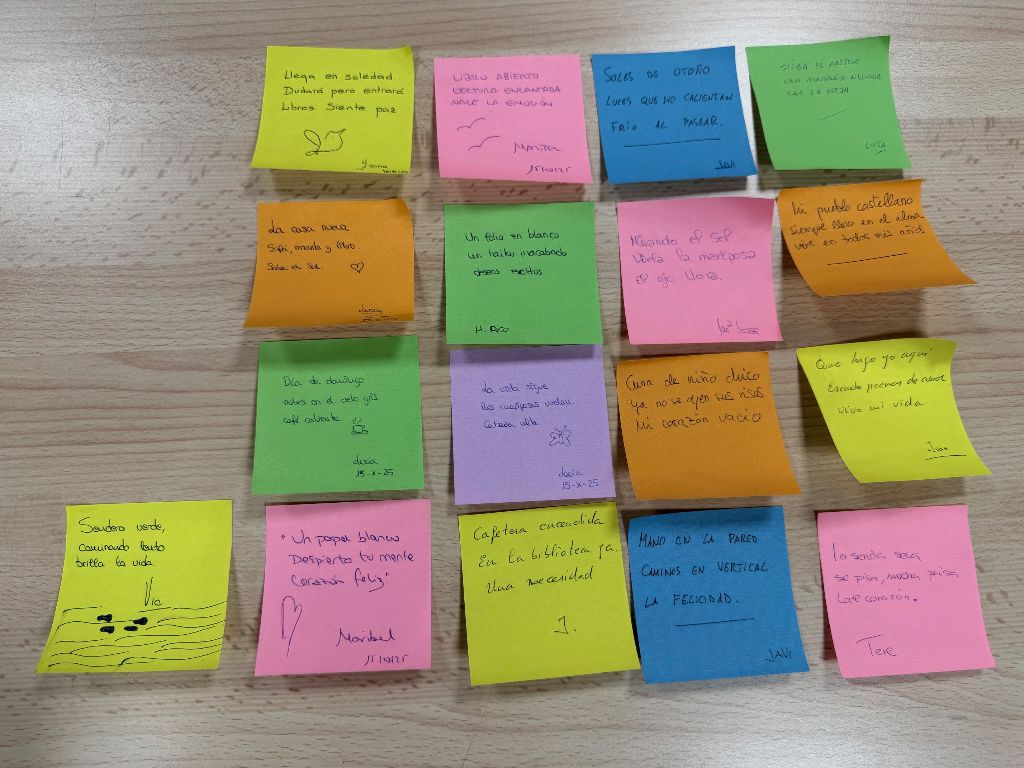 Llega en soledad.
Dudará pero entrará
Libros. Siente paz
LIBRO ABIERTO
LECTURA ENCANTADA
NACE LA EMOCIÓN
Maribel
15/10/25
SOLES DE OTOÑO
LUCES QUE NO CALIENTAN
FRÍO AL PASEAR.
JAVI
SILBA EL PASTOR
UNA MONTAÑA NEVADA
CAE LA OVEJA
La casa nueva
Sofá, manta y libro
Sale el sol.
Lucía
Un folio en blanco
un haiku inacabado
deseos escritos
H. Rico
Mirando el sol
Vuela la mariposa
el ojo llora.
Mi pueblo castellano
siempre llevo en el alma
vive en todos mis años
Día de domingo
nubes en el cielo gris
café caliente.
Lucía
15-X-25
La vida sigue
las mariposas vuelan.
Cabeza alta.
Lucía
15-X-25
Cuna de niño chico
ya no se oyen sus risas
Mi corazón vacío
Que hago yo aquí
Escucho poemas de amor
vivo mi vida
Juan
Sendero verde,
caminando lento
brilla la vida.
Vic
"Un papel blanco
Despierta tu mente
Corazón feliz"
Maribel
15/10/25
Cafetera encendida
En la biblioteca ya.
Una necesidad
J.
MANO EN LA PARED
CAMINOS EN VERTICAL
LA FELICIDAD.
JAVI
La senda seca
se pisa, mucha prisa
Late corazón.
Tere